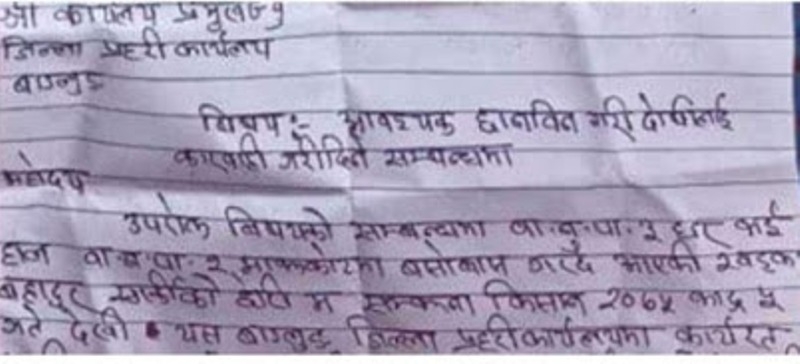 श्री कार्यालय प्रमुखज्यु
जिल्ला प्रहरी कार्यलय
बाग्लुङ
विषय :- आवश्यक छानविन गरी दोषीलाई
कारवाही गरीदिने सम्बन्धमा
महोदय
उपरोक्त विषयको सम्बन्धमा बा.न.पा. ३ घर भई
हाल बा.न.पा. २ मा बसोबास गर्दै आएकी खड्क
बहादुर की छोरी म किसान २०७५ भाद्र ५
गते देखी यस बाग्लुङ जिल्ला प्रहरी कार्यलयमा कार्यरत